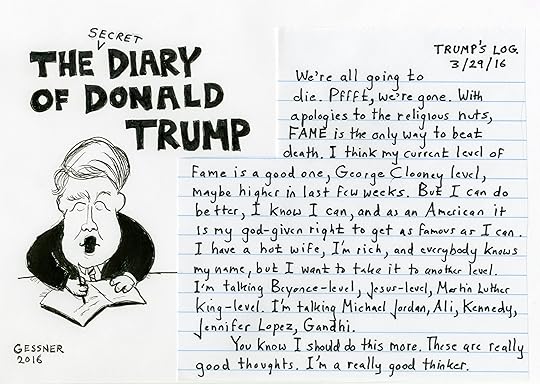 SECRET
THE DIARY
OF DONALD
TRUMP
TRUMP'S LOG
3/29/16
We're all going to
die. Pffft, we're gone. With
apologies to the religious nuts,
FAME is the only way to beat
death. I think my current level of
Fame is a good one, George Clooney level,
maybe higher in last few weeks. But I can do
better, I know I can, and as an American it
is my god-given right to get as famous as I can.
I have a hot wife, I'm rich, and everybody knows
my name, but I want to take it to another level.
I'm talking Beyonce-level, Jesus-level, Martin Luther
King-level. I'm talking Michael Jordan, Ali, Kennedy,
Jennifer Lopez, Gandhi.
You know I should do this more. These are really
good thoughts. I'm a really good thinker.
GESSNER
2016